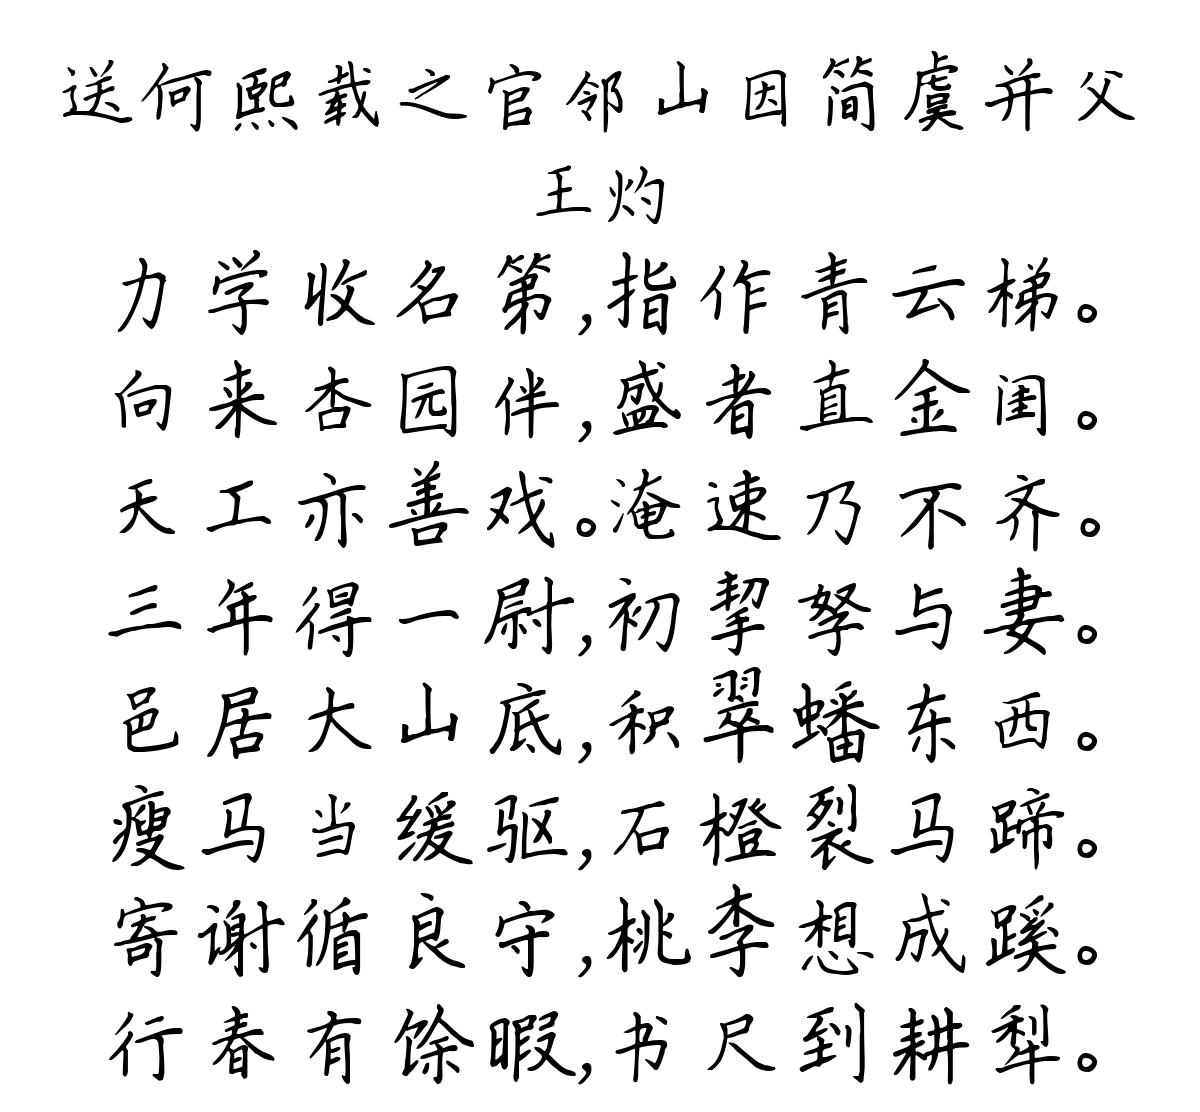 送何熙载之官邻山因简虞并父
王灼
力学收名第,指作青云梯。
向来杏园伴,盛者直金闺。
天工亦善戏。淹速乃不齐。
三年得一尉,初挈孥与妻。
邑居大山底,积翠蟠东西。
瘦马当缓驱,石橙裂马蹄。
寄谢循良守,桃李想成蹊。
行春有馀暇,书尺到耕犁。